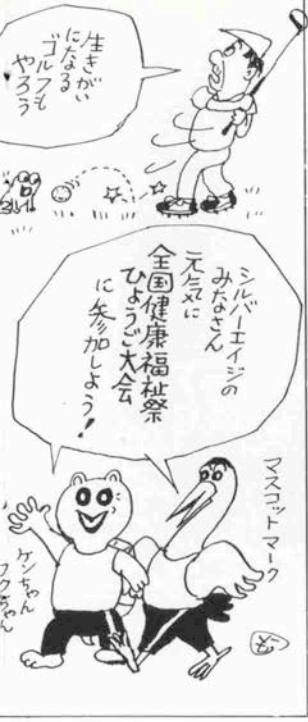 生きがい
になる
ゴルフも
やろう
シルバーエイジの
みなさん
元気に
全国健康福祉祭
ひょうご大会
に参加しよう!
マスコットマーク
ケンちゃん
フクちゃん